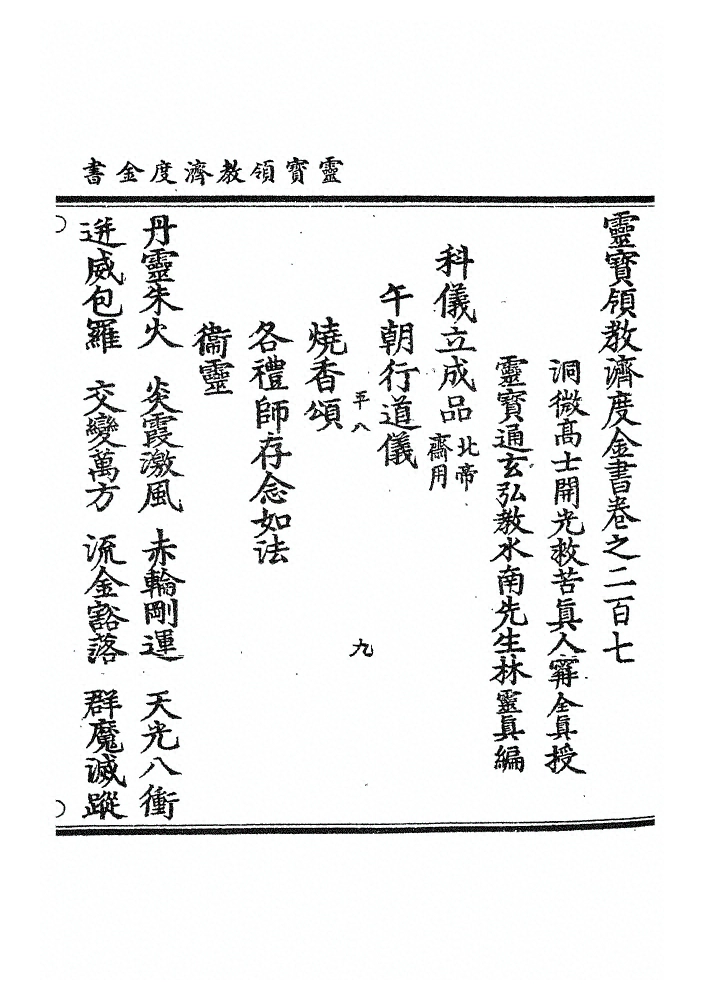 靈寶領教濟度金書
靈寶領教濟度金書卷之二百七
洞微高士開光救苦眞人寗全眞授
靈寶通玄弘教水南先生林靈眞編
科儀立成品北帝齋用
午朝行道儀
平八 九
燒香頌
各禮師存念如法
衞靈
丹靈朱火 炎霞激風 赤輪剛運 天光八衝
迸威包羅 交變萬方 流金豁落 群魔滅蹤